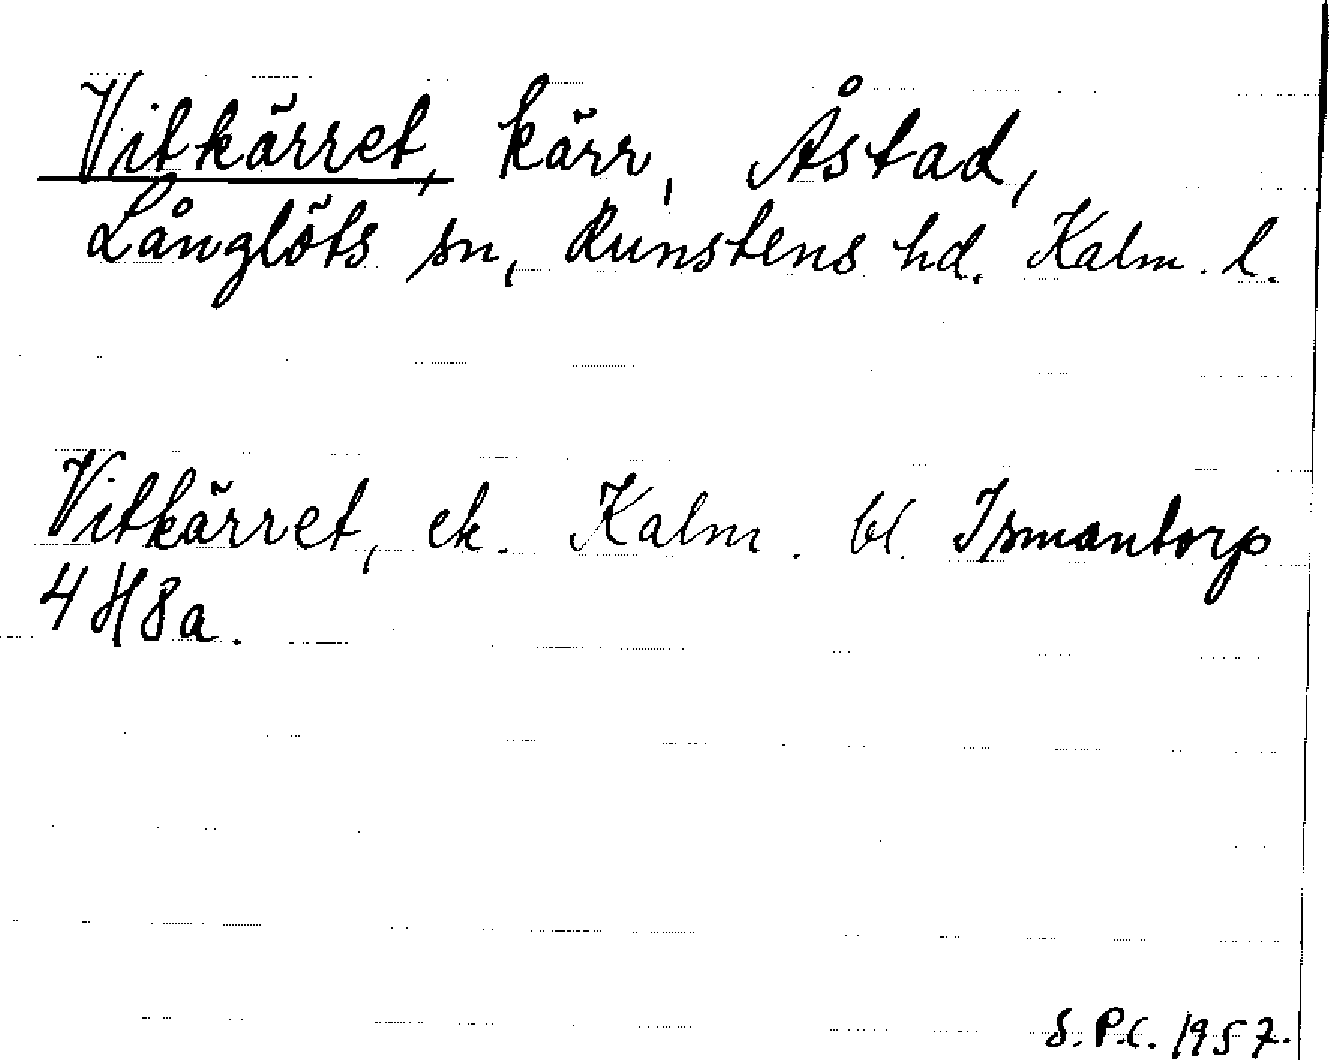 Vitkärret, kärr, Åstad,
Långlöts sn, Runstens hd. Kalm. l.
Vitkärret, ek. Kalm. bl. Ismantorp
4 H 8 a.
S.P.C. 1957.